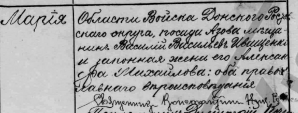 Марія
Области Войска Донскаго Рос
скаго округа, посада Азова мѣща
нинъ Василій Васильевъ Иващенко
и законная жена его Алексан
дра Михайлова: оба право
славнаго вѣроисповѣданія
Священникъ